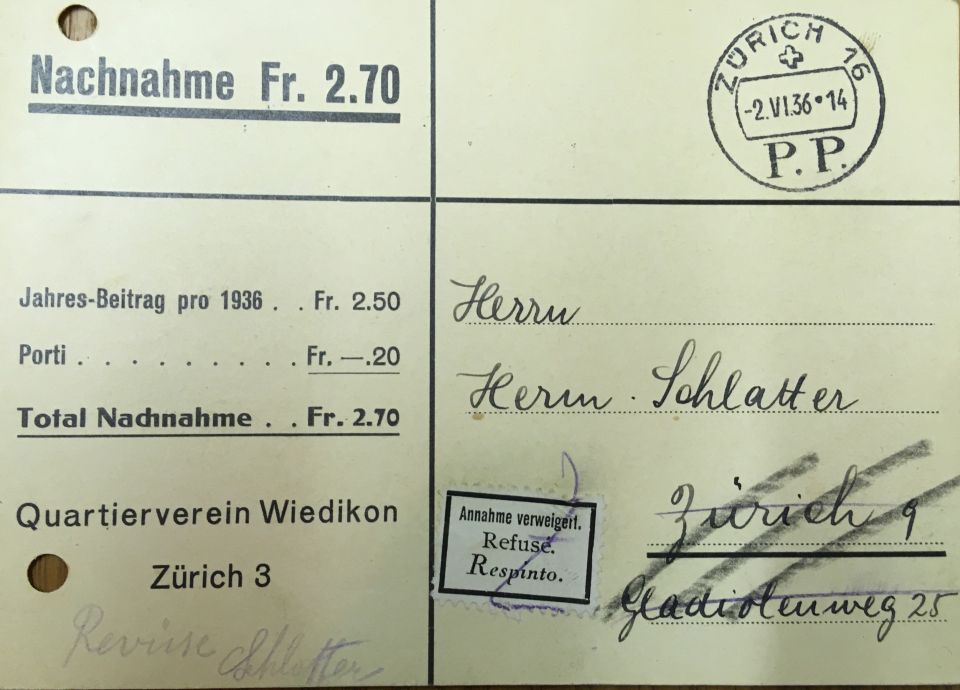 Nachnahme Fr. 2.70
ZÜRICH 16
-2.VI.36•14
P.P.
Jahres-Beitrag pro 1936 . . Fr. 2.50
Porti . . . . . . . . . Fr. —.20
Total Nachnahme . . Fr. 2.70
Quartierverein Wiedikon
Zürich 3
Schlatter
Herrn
Herm. Schlatter
Zürich 9
Gladiolenweg 25
Annahme verweigert.
Refusé.
Respinto.